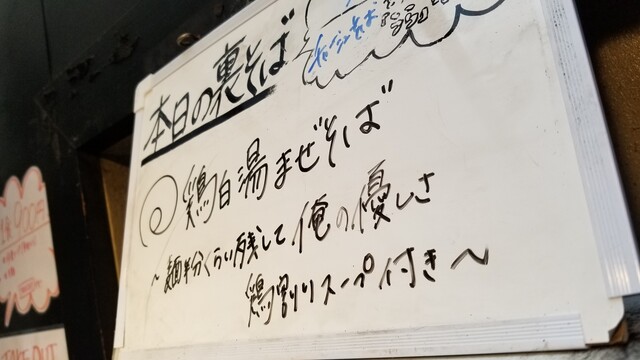 本日の裏そば
鶏白湯まぜそば
～麺半分くらい残して俺の優しさ
鶏割りスープ付き～
TAKE OUT